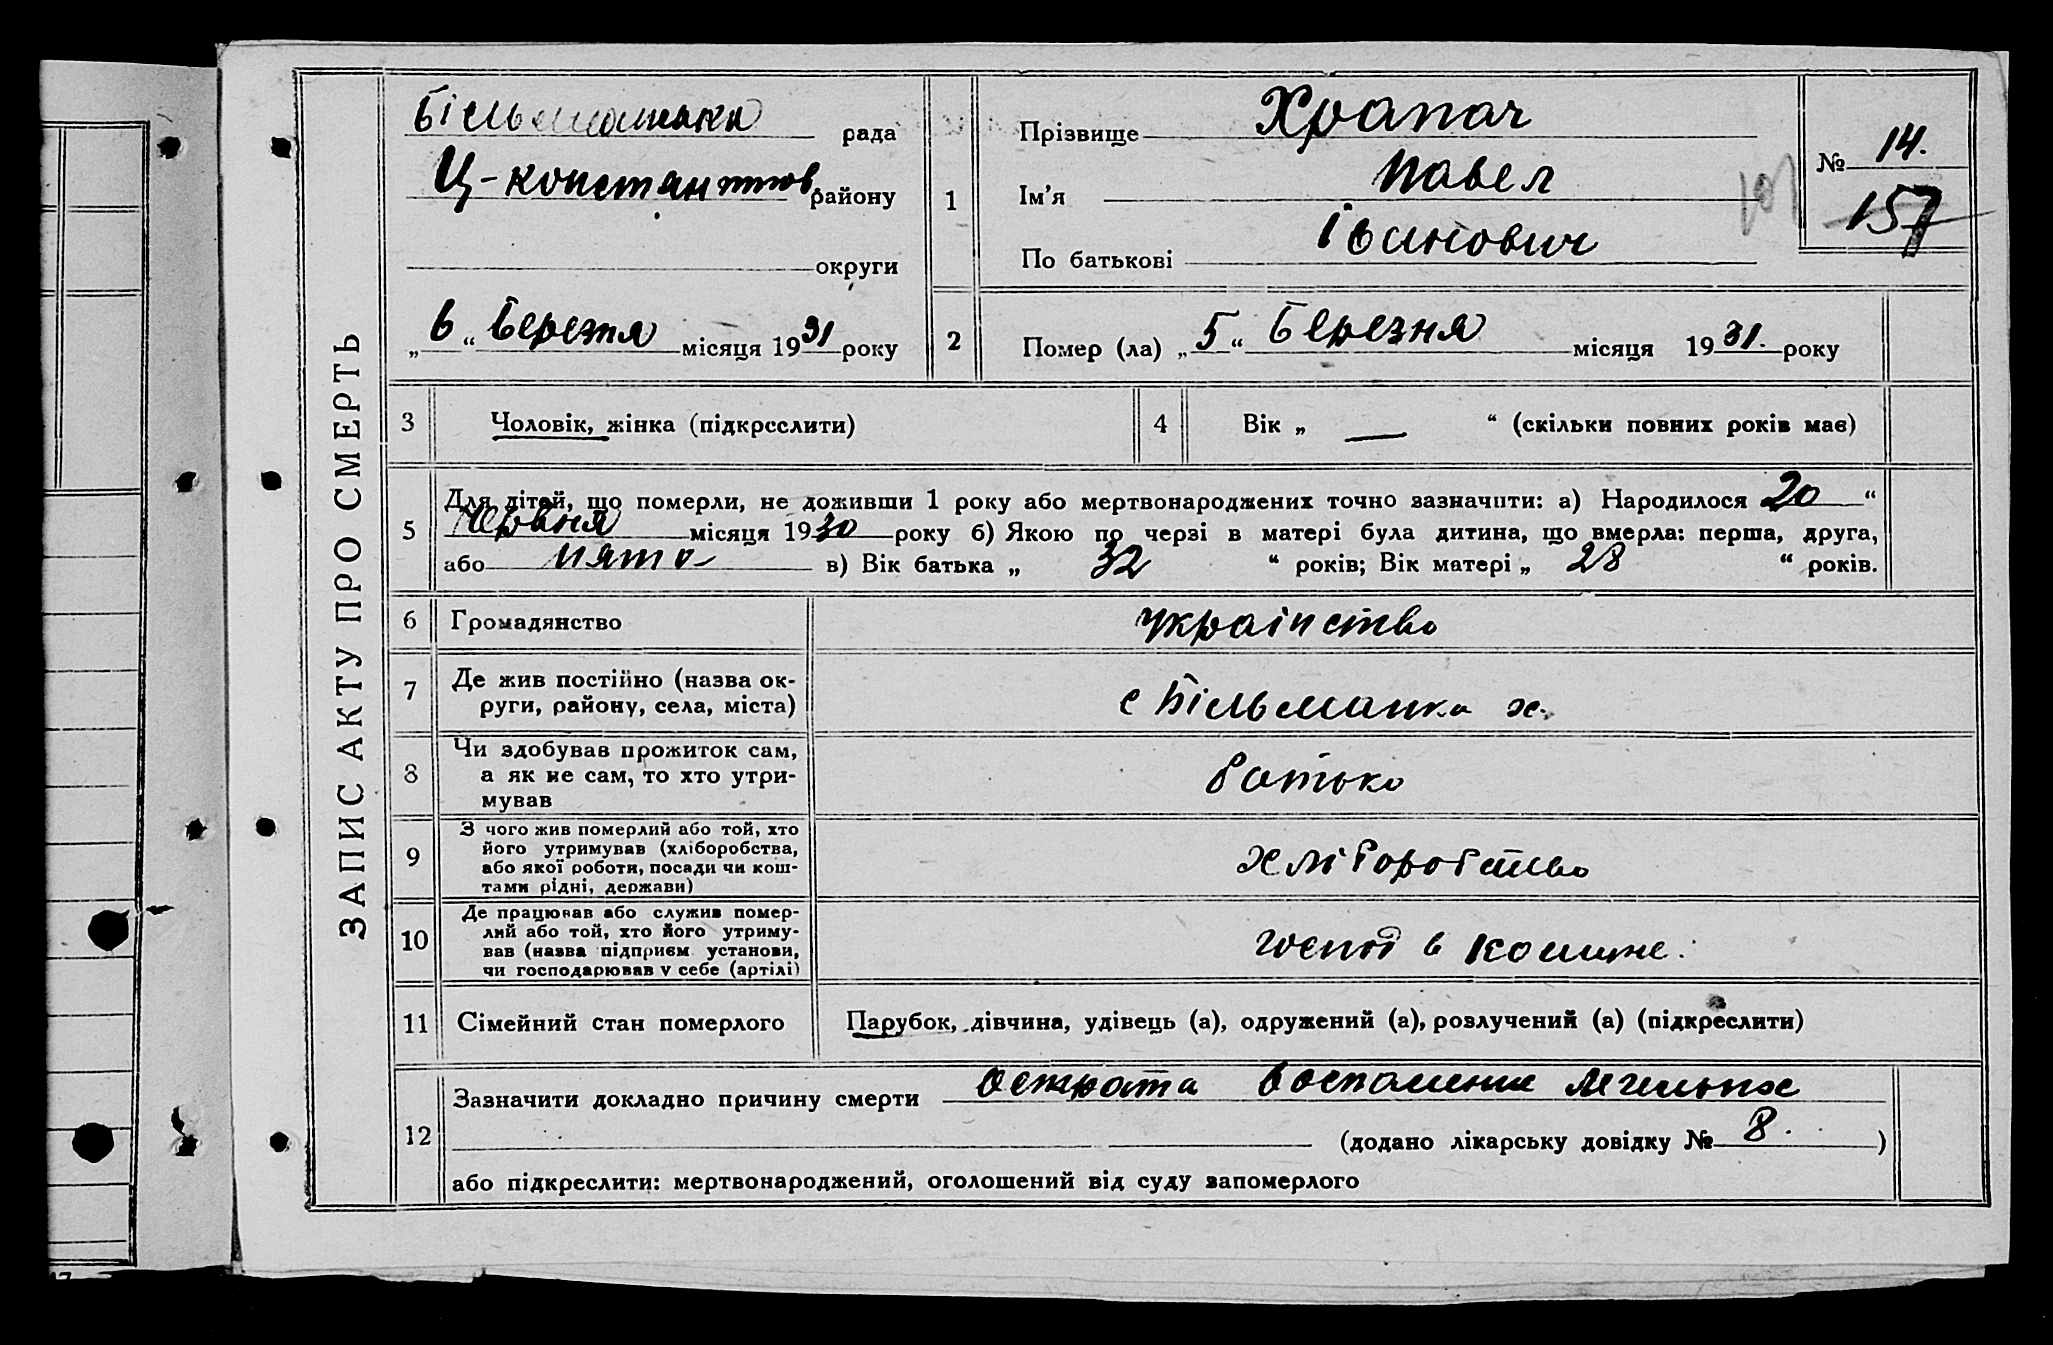 ЗАПИС АКТУ ПРО СМЕРТЬ
Більманська рада
Ц-констант район у
округи
„6“ Березня місяця 1931 року
1
Прізвище Храпач
Ім’я Павел
По батькові Іванович
№ 14.
157
2
Помер (ла) „5“ Березня місяця 1931. року
3 Чоловік, жінка (підкреслити)
4 Вік „ — “ (скільки повних років має)
5 Для дітей, що померли, не доживши 1 року або мертвонароджених точно зазначити: а) Народилося 20 “
Червня місяця 1930 року б) Якою по черзі в матері була дитина, що вмерла: перша, друга,
або пята в) Вік батька „ 32 “ років; Вік матері „ 28 “ років.
6 Громадянство українство
7 Де жив постійно (назва ок-
руги, району, села, міста) с Більманка
8 Чи здобував прожиток сам,
а як не сам, то хто утри-
мував батько
9 З чого жив померлий або той, хто
його утримував (хліборобства,
або якої роботи, посади чи кош-
тами рідні, держави) хліборобство
10 Де працював або служив помер-
лий або той, хто його утриму-
вав (назва підприєм. установи,
чи господарював у себе (артілі) в
11 Сімейний стан померлого Парубок, дівчина, удівець (а), одружений (а), розлучений (а) (підкреслити)
12 Зазначити докладно причину смерти острота воспаление легких
(додано лікарську довідку № 8. )
або підкреслити: мертвонароджений, оголошений від суду запомерлого